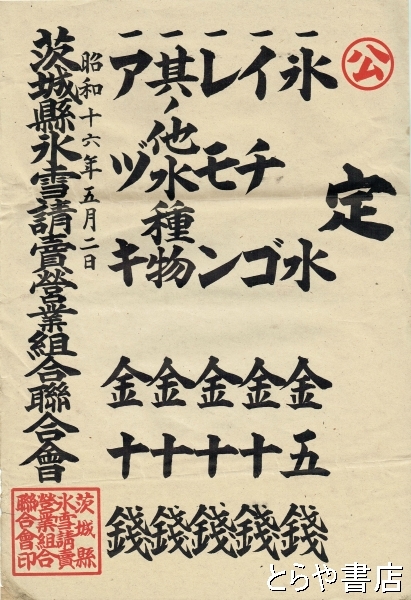 公
定
一氷水 金五錢
一イチゴ 金十錢
一レモン 金十錢
一其ノ他水種物 金十錢
一アヅキ 金十錢
昭和十六年五月二日
茨城縣氷雪請賣營業組合聯合會
茨城縣
氷雪請賣
營業組合
聯合會印
とらや書店